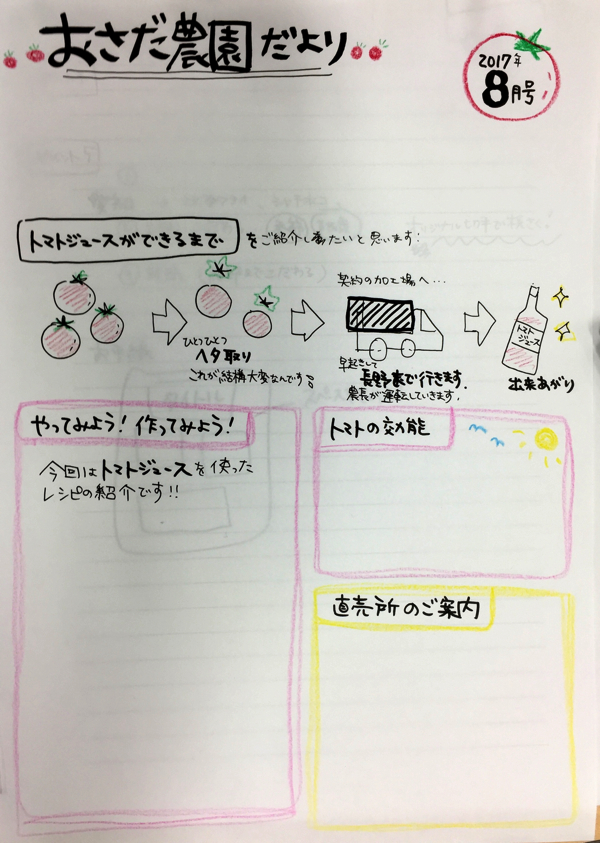 おさだ農園だより
2017年
8月号
トマトジュースができるまで をご紹介し
たいと思います!
契約の加工場へ…
ひとつひとつ
ヘタ取り
これが結構大変なんです
早起きして
長野まで行きます。
農長が運転していきます。
トマト
ジュース
出来あがり
やってみよう!作ってみよう!
今回はトマトジュースを使った
レシピの紹介です!!
トマトの効能
直売所のご案内